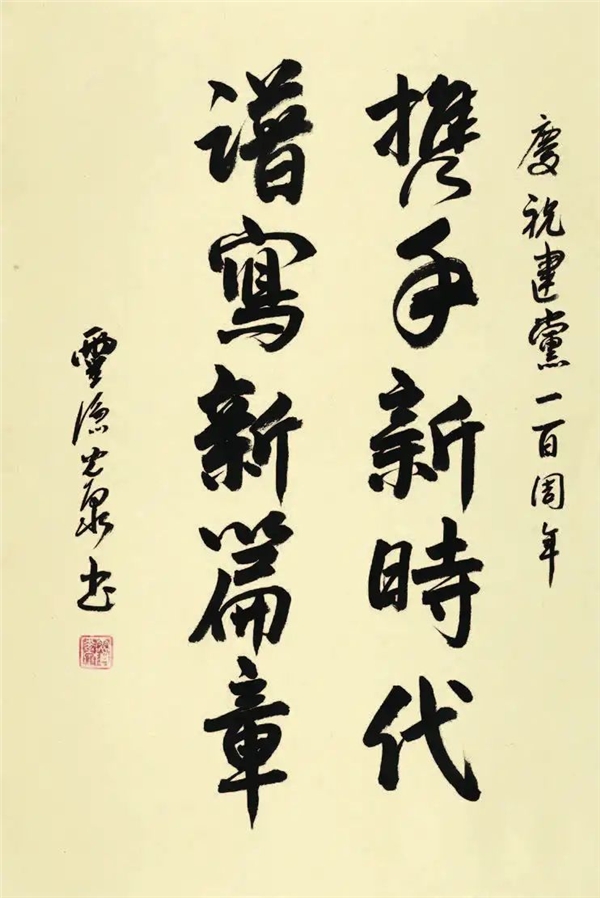 慶祝建黨一百周年
携手新時代
譜寫新篇章
靈隐光泉书